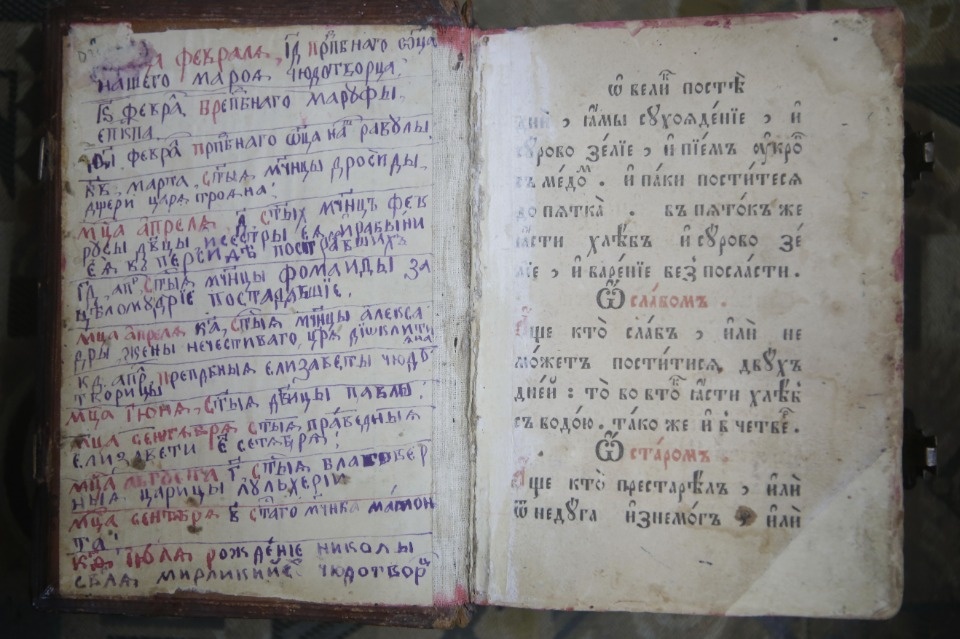 ца феврала, гі, прпбнаго оца
нашего мароѧ чюдотворца.
і҃ѕ февра̑ врепбнаго маруфы
епкпа.
феврал̑ прпбнаго ѿца на раѵулы
к҃в. марта, стыѧ мчнцы дросиды
дщери царѧ троѧна:
мца апрелѧ д҃ стых мчнцъ фев
русы двцы, исестры еѧ ирабыни
еѧ въ персидѣ пострадавшихъ
гі, апр, стыѧ мчнцы фомаиды за
цѣломудрїе пострадавшїе.
мца апрелѧ ка, стыѧ мчнцы алекса
дры жены нечестиваго, црѧ дїѡклитїана
кд, апр, препдбныѧ елизабеты чюдо
творицы
мца іюнѧ. стыѧ двицы павлы:
мца сентѧврѧ стыѧ праведныѧ
елизавети е҃ сетѧврѧ:
мца августа і҃ стыѧ благовер
ныѧ. царицы пульхерїи
мца сентѧврѧ в҃ стаго мчнка мамон
та:
к҃ѳ іюлѧ рождение николы
свлѧ мирликийс чюдотвор
ѡ вели̑ постѣ̀
, са́мы сꙋхоѧде́нїе , и҆
сꙋ́рово зе́лїе , и҆ пі́емъ ᲂу҆кро̑
съ ме́до̑ . и҆ па́ки пости́тесѧ
до пѧтка̀ . въ пѧто́къ же
ꙗ҆́сти хлѣ́бъ и҆ сꙋ́рово зе́
лїе , и҆ варе́нїе без̾ посла́сти .
Ѿ сла́бомъ .
А҆́ще кто̀ сла́бъ , и҆лѝ не
мо́жетъ пости́тисѧ двꙋ́хъ
дне́й : то̀ во вто̑ ꙗ҆́сти хлѣ́б
съ водо́ю. та́ко же и҆ в̾ четве̑ .
Ѿ ста́ромъ .
А҆́ще кто̀ престарѣ́лъ , и҆лѝ
ѿ недꙋ́га и҆знемо́гъ , и҆лѝ